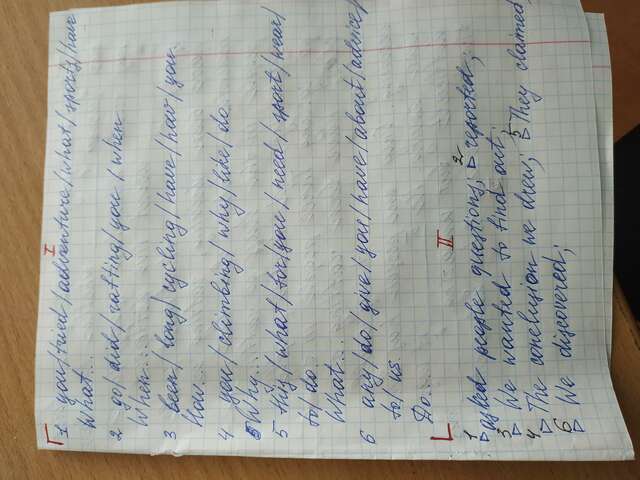 I
1 you/tried/adventure/what/sports/have
What...
2 go/did/rafting/you/when
When...
3 been/long/cycling/have/how/you
How...
4 you/climbing/why/like/do
Why...
5 this/what/for/you/need/sport/wear/
to/do
What...
6 any/do/give/you/have/about/advice/
to/us
Do...
II
1 asked people questions; 2 reported;
3 We wanted to find out;
4 The conclusion we drew; 5 They claimed
6 We discovered;